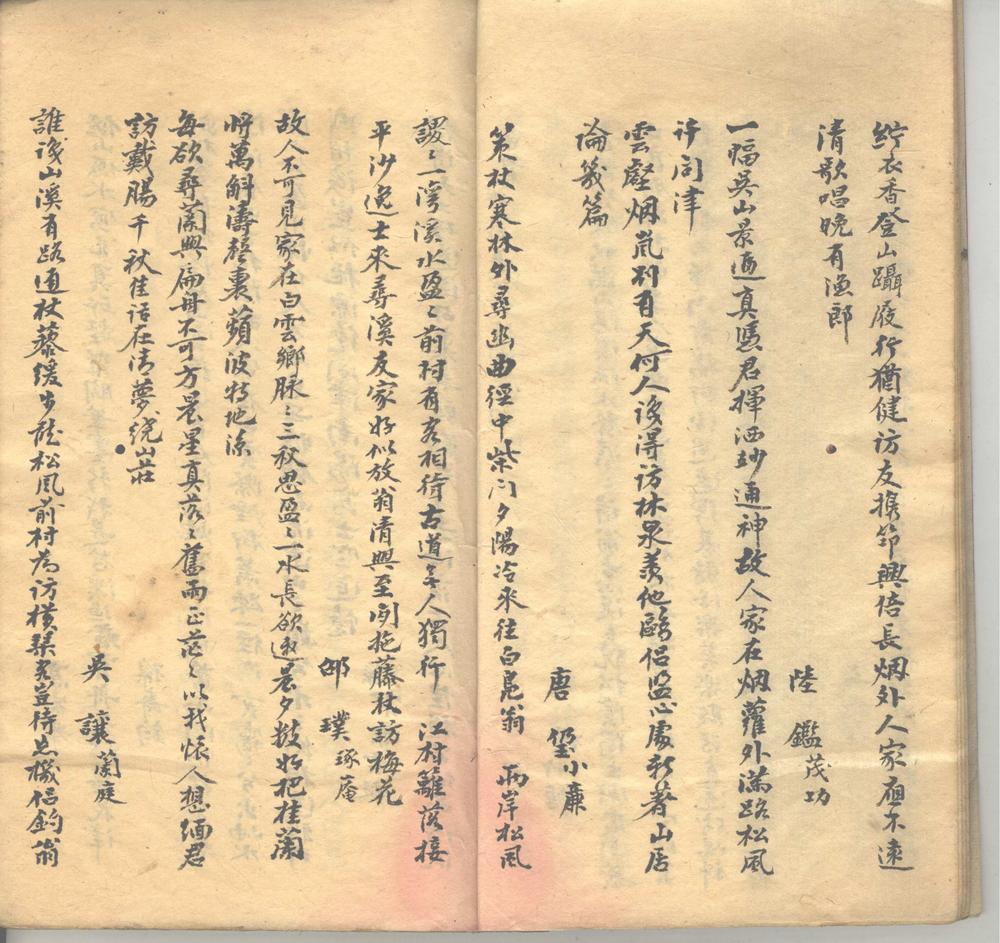 紵衣香登山躡屐行猶健訪友攜筇興倍長烟外人家廟不遠
清歌唱晚有漁郎
陸鑑茂功
一幅吳山景逼真憑君揮洒妙通神故人家在烟蘿外滿路松風
許問津
雲壑烟嵐別有天何人後得訪林泉羨他鷗侶盟心處新著山居
論幾篇
唐璽小廉
策杖寒林外尋幽曲徑中柴門夕陽冷來往白鳧翁 兩岸松風
謖〻一灣溪水盈〻前村有客相待古道無人獨行 江村籬落接
平沙逸士來尋溪友家好似放翁清興至閒拖藤杖訪梅花
邵璞琢庵
故人不可見家在白雲鄉脉〻三秋思盈〻一水長欲邀晨夕數好把桂蘭
將萬斛濤聲裏蘋波特地涼
每欲尋蘭興扁舟不可方晨星真落〻舊雨正茫〻以我懷人想緬君
訪戴腸千秋佳話在清夢繞山莊
吳讓蘭庭
誰識山溪有路通杖藜緩步聽松風前村為訪橫琴客豈待忘機侶釣翁